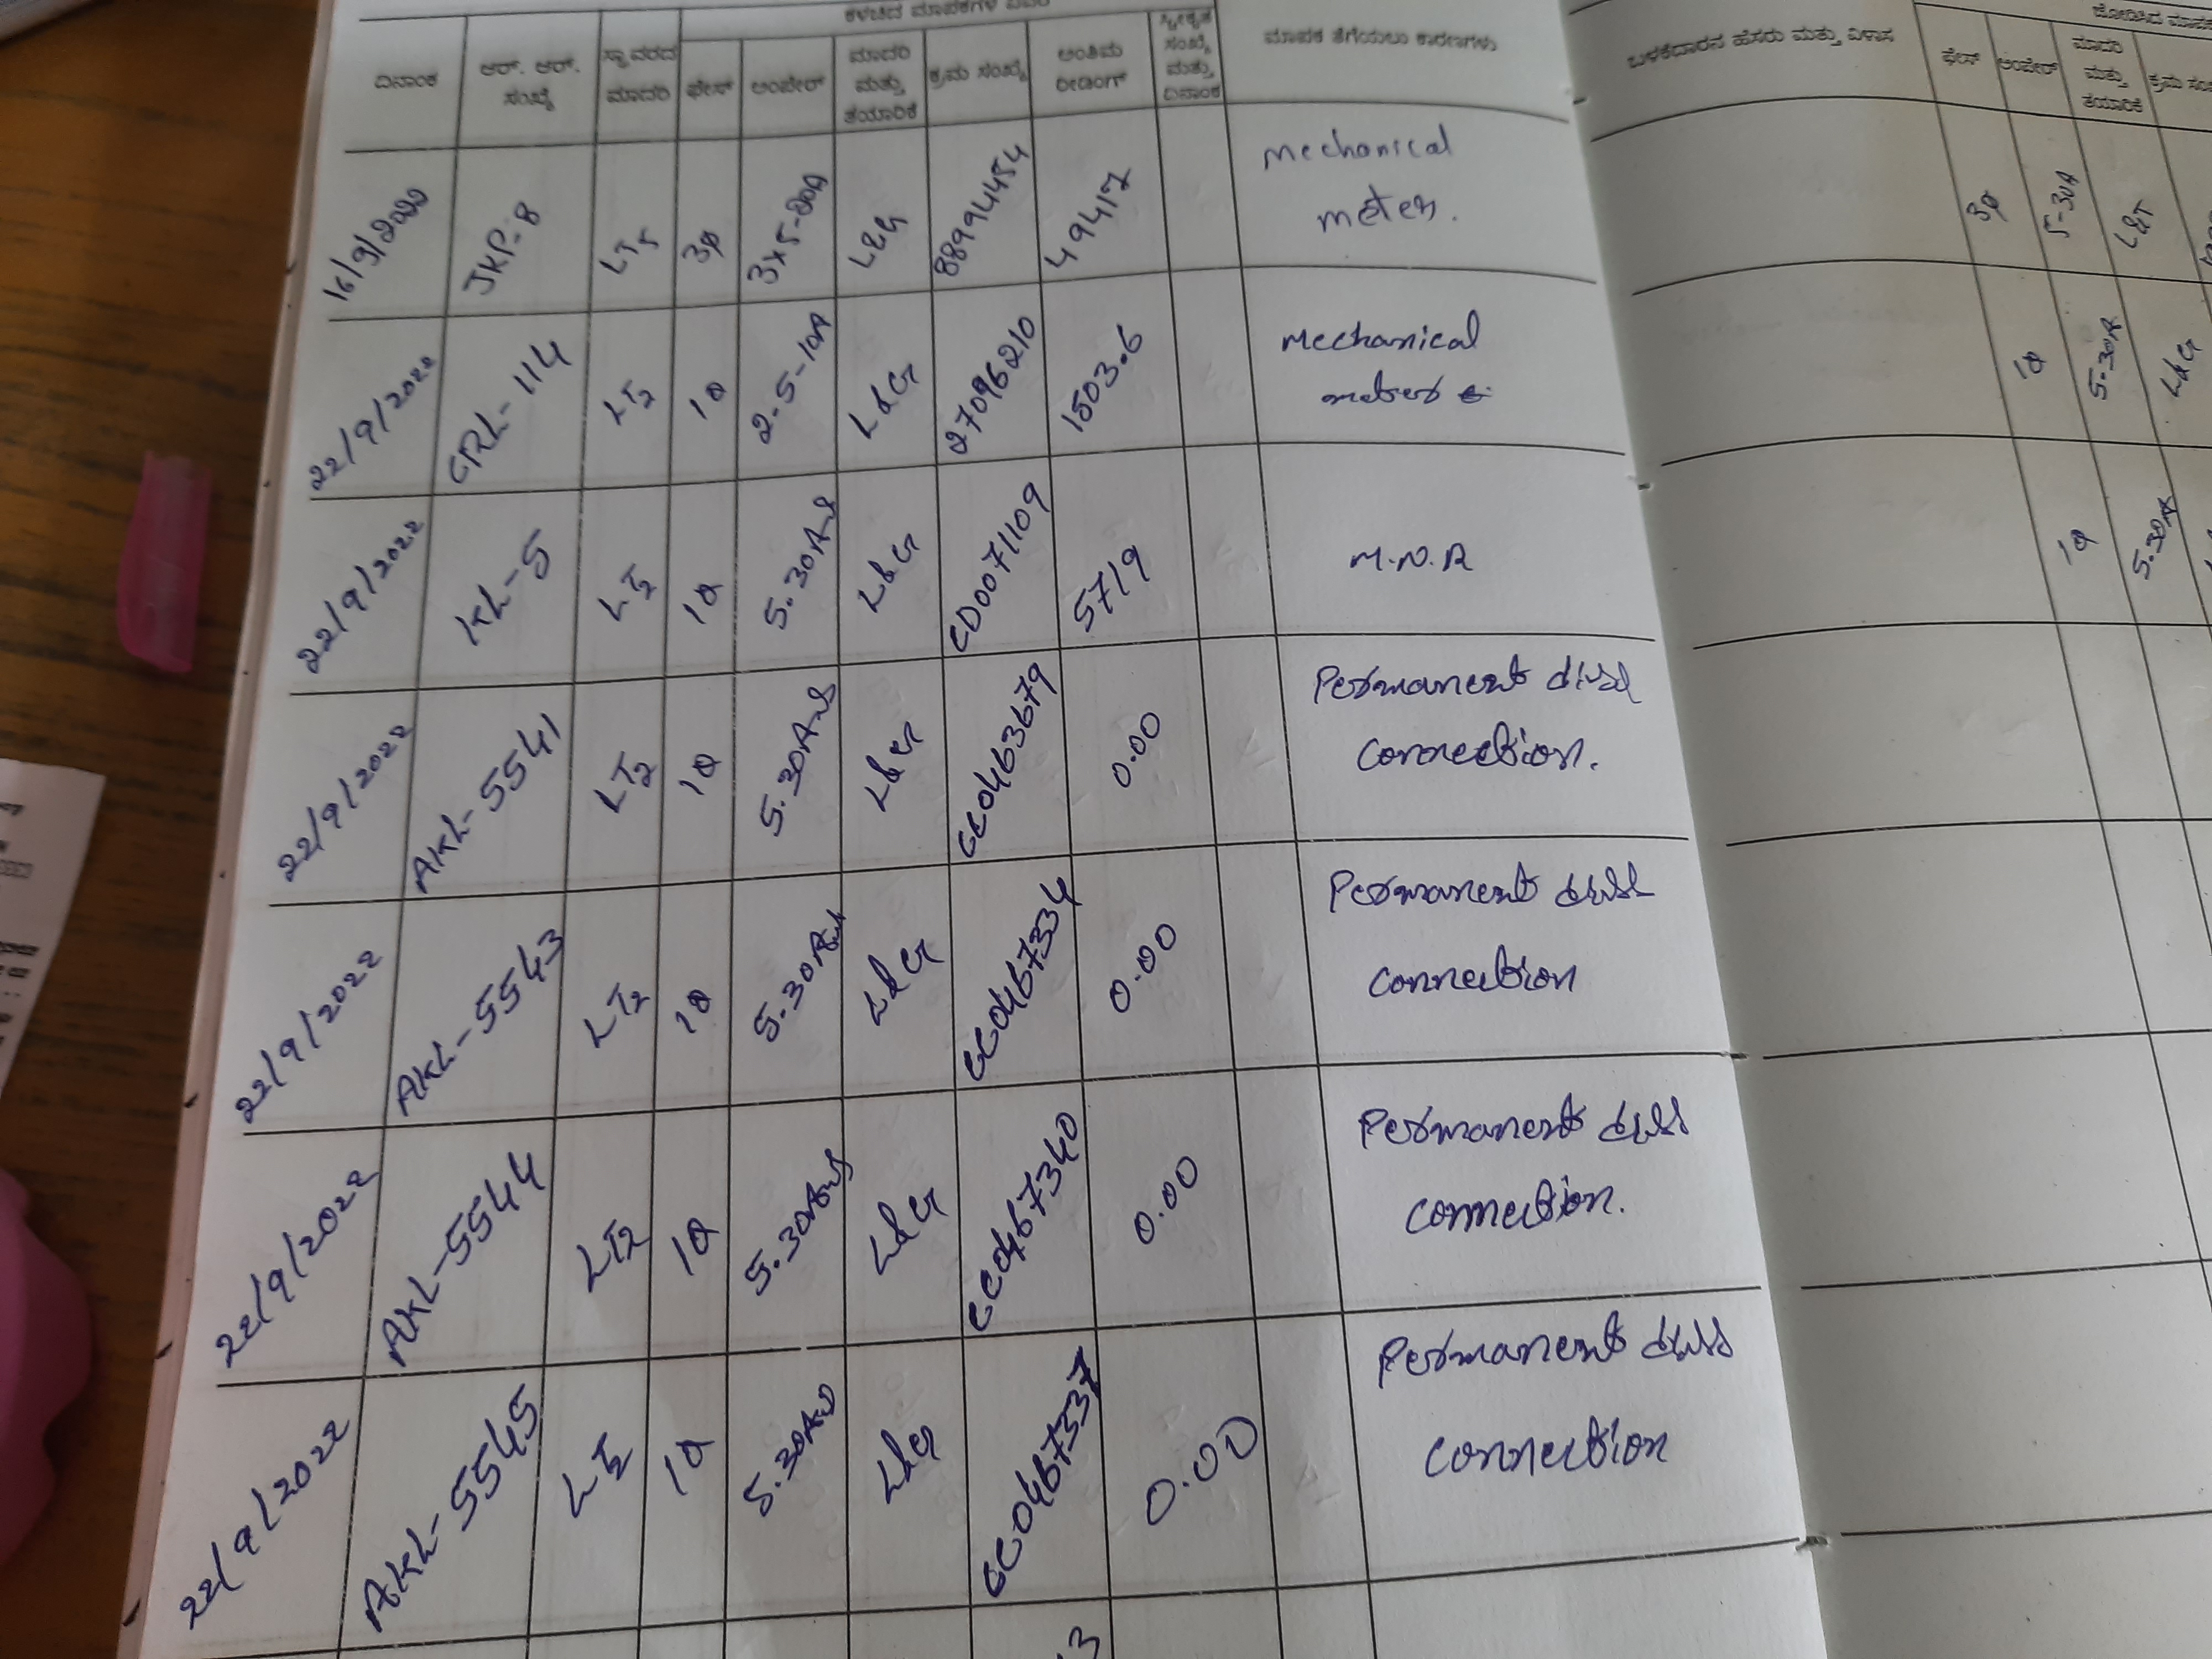 ಕಳಚಿದ ಮಾಪಕಗಳ ವಿವರ
ದಿನಾಂಕ ಆರ್. ಆರ್. ಸಂಖ್ಯೆ ಸ್ಥಾವರದ ಮಾದರಿ ಫೇಸ್ ಅಂಪೇರ್ ಮಾದರಿ ಮತ್ತು ತಯಾರಿಕೆ ಕ್ರಮ ಸಂಖ್ಯೆ ಅಂತಿಮ ರೀಡಿಂಗ್ ಸ್ವೀಕೃತ ಸಂಖ್ಯೆ ಮತ್ತು ದಿನಾಂಕ ಮಾಪಕ ತೆಗೆಯಲು ಕಾರಣಗಳು
16/9/2022 JKP-8 LT5 3φ 3x5-20A L&G 88994454 49417 Mechanical
meter.
22/9/2022 GRL-114 LT2 1φ 2.5-10A L&G 27096210 1503.6 Mechanical
22/9/2022 KL-5 LT2 1φ 5.30A L&G CD0071109 5719 M.N.R
22/9/2022 AKL-5541 LT2 1φ 5.30A L&G GC0463679 0.00 Permanent
connection.
22/9/2022 AKL-5543 LT2 1φ 5.30A L&G GC0467334 0.00 Permanent
connection
22/9/2022 AKL-5544 LT2 1φ 5.30A L&G GC0467340 0.00 Permanent
connection.
22/9/2022 AKL-5545 LT2 1φ 5.30A L&G GC0467337 0.00 Permanent
connection
3
ಜೋಡಿಸಿದ
ಬಳಕೆದಾರನ ಹೆಸರು ಮತ್ತು ವಿಳಾಸ ಫೇಸ್ ಅಂಪೇರ್ ಮಾದರಿ ಮತ್ತು ತಯಾರಿಕೆ ಕ್ರಮ
3φ 5-30A L&T
1φ 5-30A L&G
1φ 5.30A